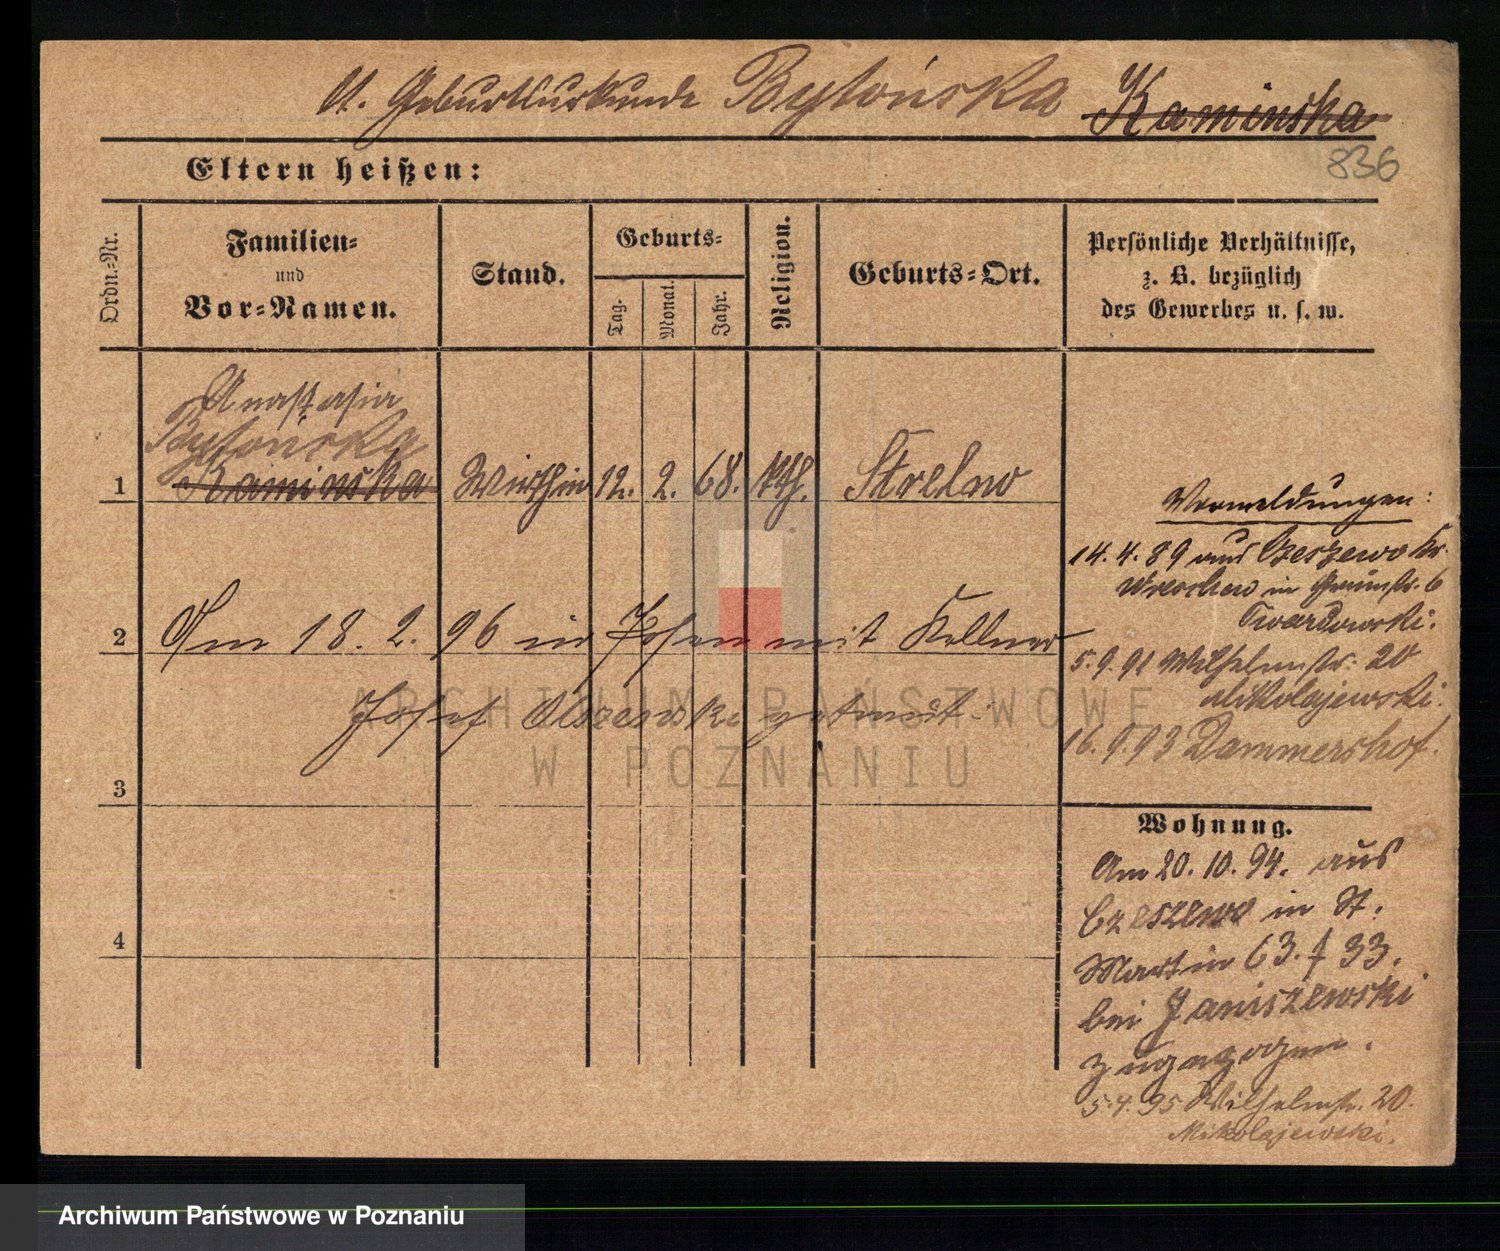 lt. Geburtsurkunde Bytońska Kaminska
836
Eltern heißen:
Ordn.-Nr.
Familien-
und
Vor-Namen.
Stand.
Geburts-
Tag.
Monat.
Jahr.
Religion.
Geburts-Ort.
Persönliche Verhältnisse,
z. B. bezüglich
des Gewerbes u. s. w.
Anastasia
Bytońska
1 Kaminska Wirthin 12. 2. 68. kth. Strelno
2 Am 18. 2. 96 in Posen mit Kellner
Josef Olszewski getraut.
3
4
Vormeldungen:
14. 4. 89 aus Czeszewo Kr.
Wreschen in Grünstr. 6
Twardowski.
5. 9. 91 Wilhelmstr. 20
Mikolajewski.
16. 9. 93 Dammershof.
Wohnung.
Am 20. 10. 94. aus
Czeszewo in St.
Martin 63. 33.
bei Janiszewski
zugezogen.
95 Wilhelmstr. 20.
Mikolajewski.
ARCHIWUM PAŃSTWOWE
W POZNANIU
Archiwum Państwowe w Poznaniu